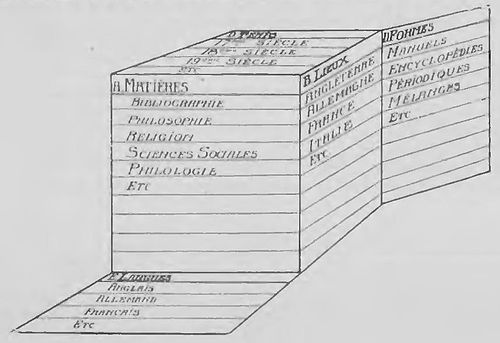 D TEMPS
17ème SIÈCLE
18ème SIÈCLE
19ème SIÈCLE
ETC
A. MATIÈRES
BIBLIOGRAPHIE
PHILOSOPHIE
RELIGION
SCIENCES SOCIALES
PHILOLOGIE
ETC
B LIEUX
ANGLETERRE
ALLEMAGNE
FRANCE
ITALIE
ETC
D FORMES
MANUELS
ENCYCLOPÉDIES
PÉRIODIQUES
MÉLANGES
ETC
E LANGUES
ANGLAIS
ALLEMAND
FRANCAIS
ETC